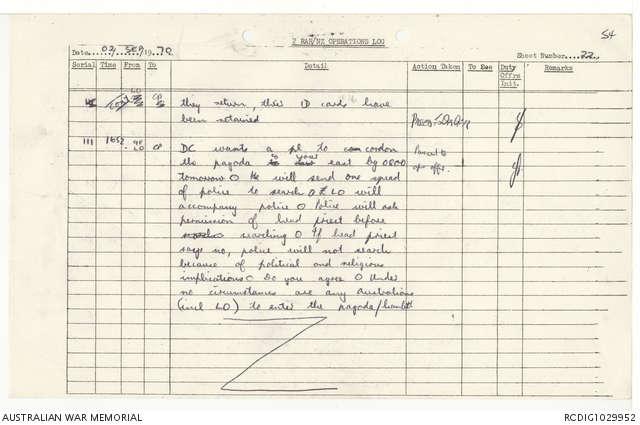 54
2 RAR/NZ OPERATIONS LOG
Date 02 SEP 1970 Sheet Number 22
Serial Time From To Detail Action Taken To See Duty Offrs Init. Remarks
they return, their ID cards have
been retained
111 1652 LO CP DC wants a pl to cordon
the pagoda to your east by 0800
tomorrow O He will send one squad
of police to search O LO will
accompany police O Police will ask
permission of head priest before
searching O If head priest
says no, police will not search
because of political and religious
implications O Do you agree O Under
no circumstances are any Australians
(incl LO) to enter the pagoda/
Passed to
AUSTRALIAN WAR MEMORIAL
RCDIG1029952